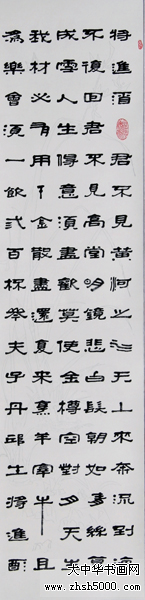 將進酒 君不見黃河之水天上來奔流到海
不復回君不見高堂明鏡悲白髮朝如青絲暮
成雪人生得意須盡歡莫使金樽空對月天生
我材必有用千金散盡還復來烹羊宰牛且
為樂會須一飲弎百杯岑夫子丹邱生將進酒
天中书画网
www.zhshw.com